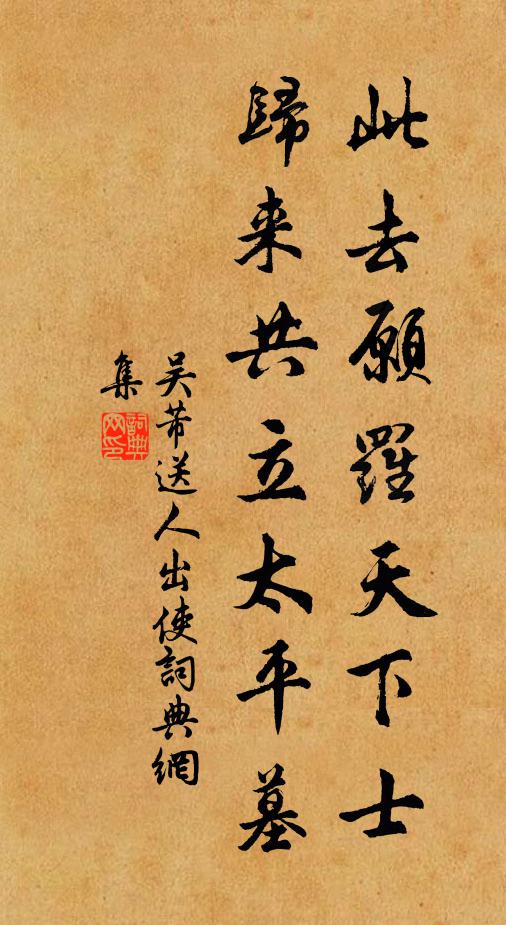 此去願羅天下士
歸来共立太平墓
吴芾送人出使詞典網
集
詞典网印